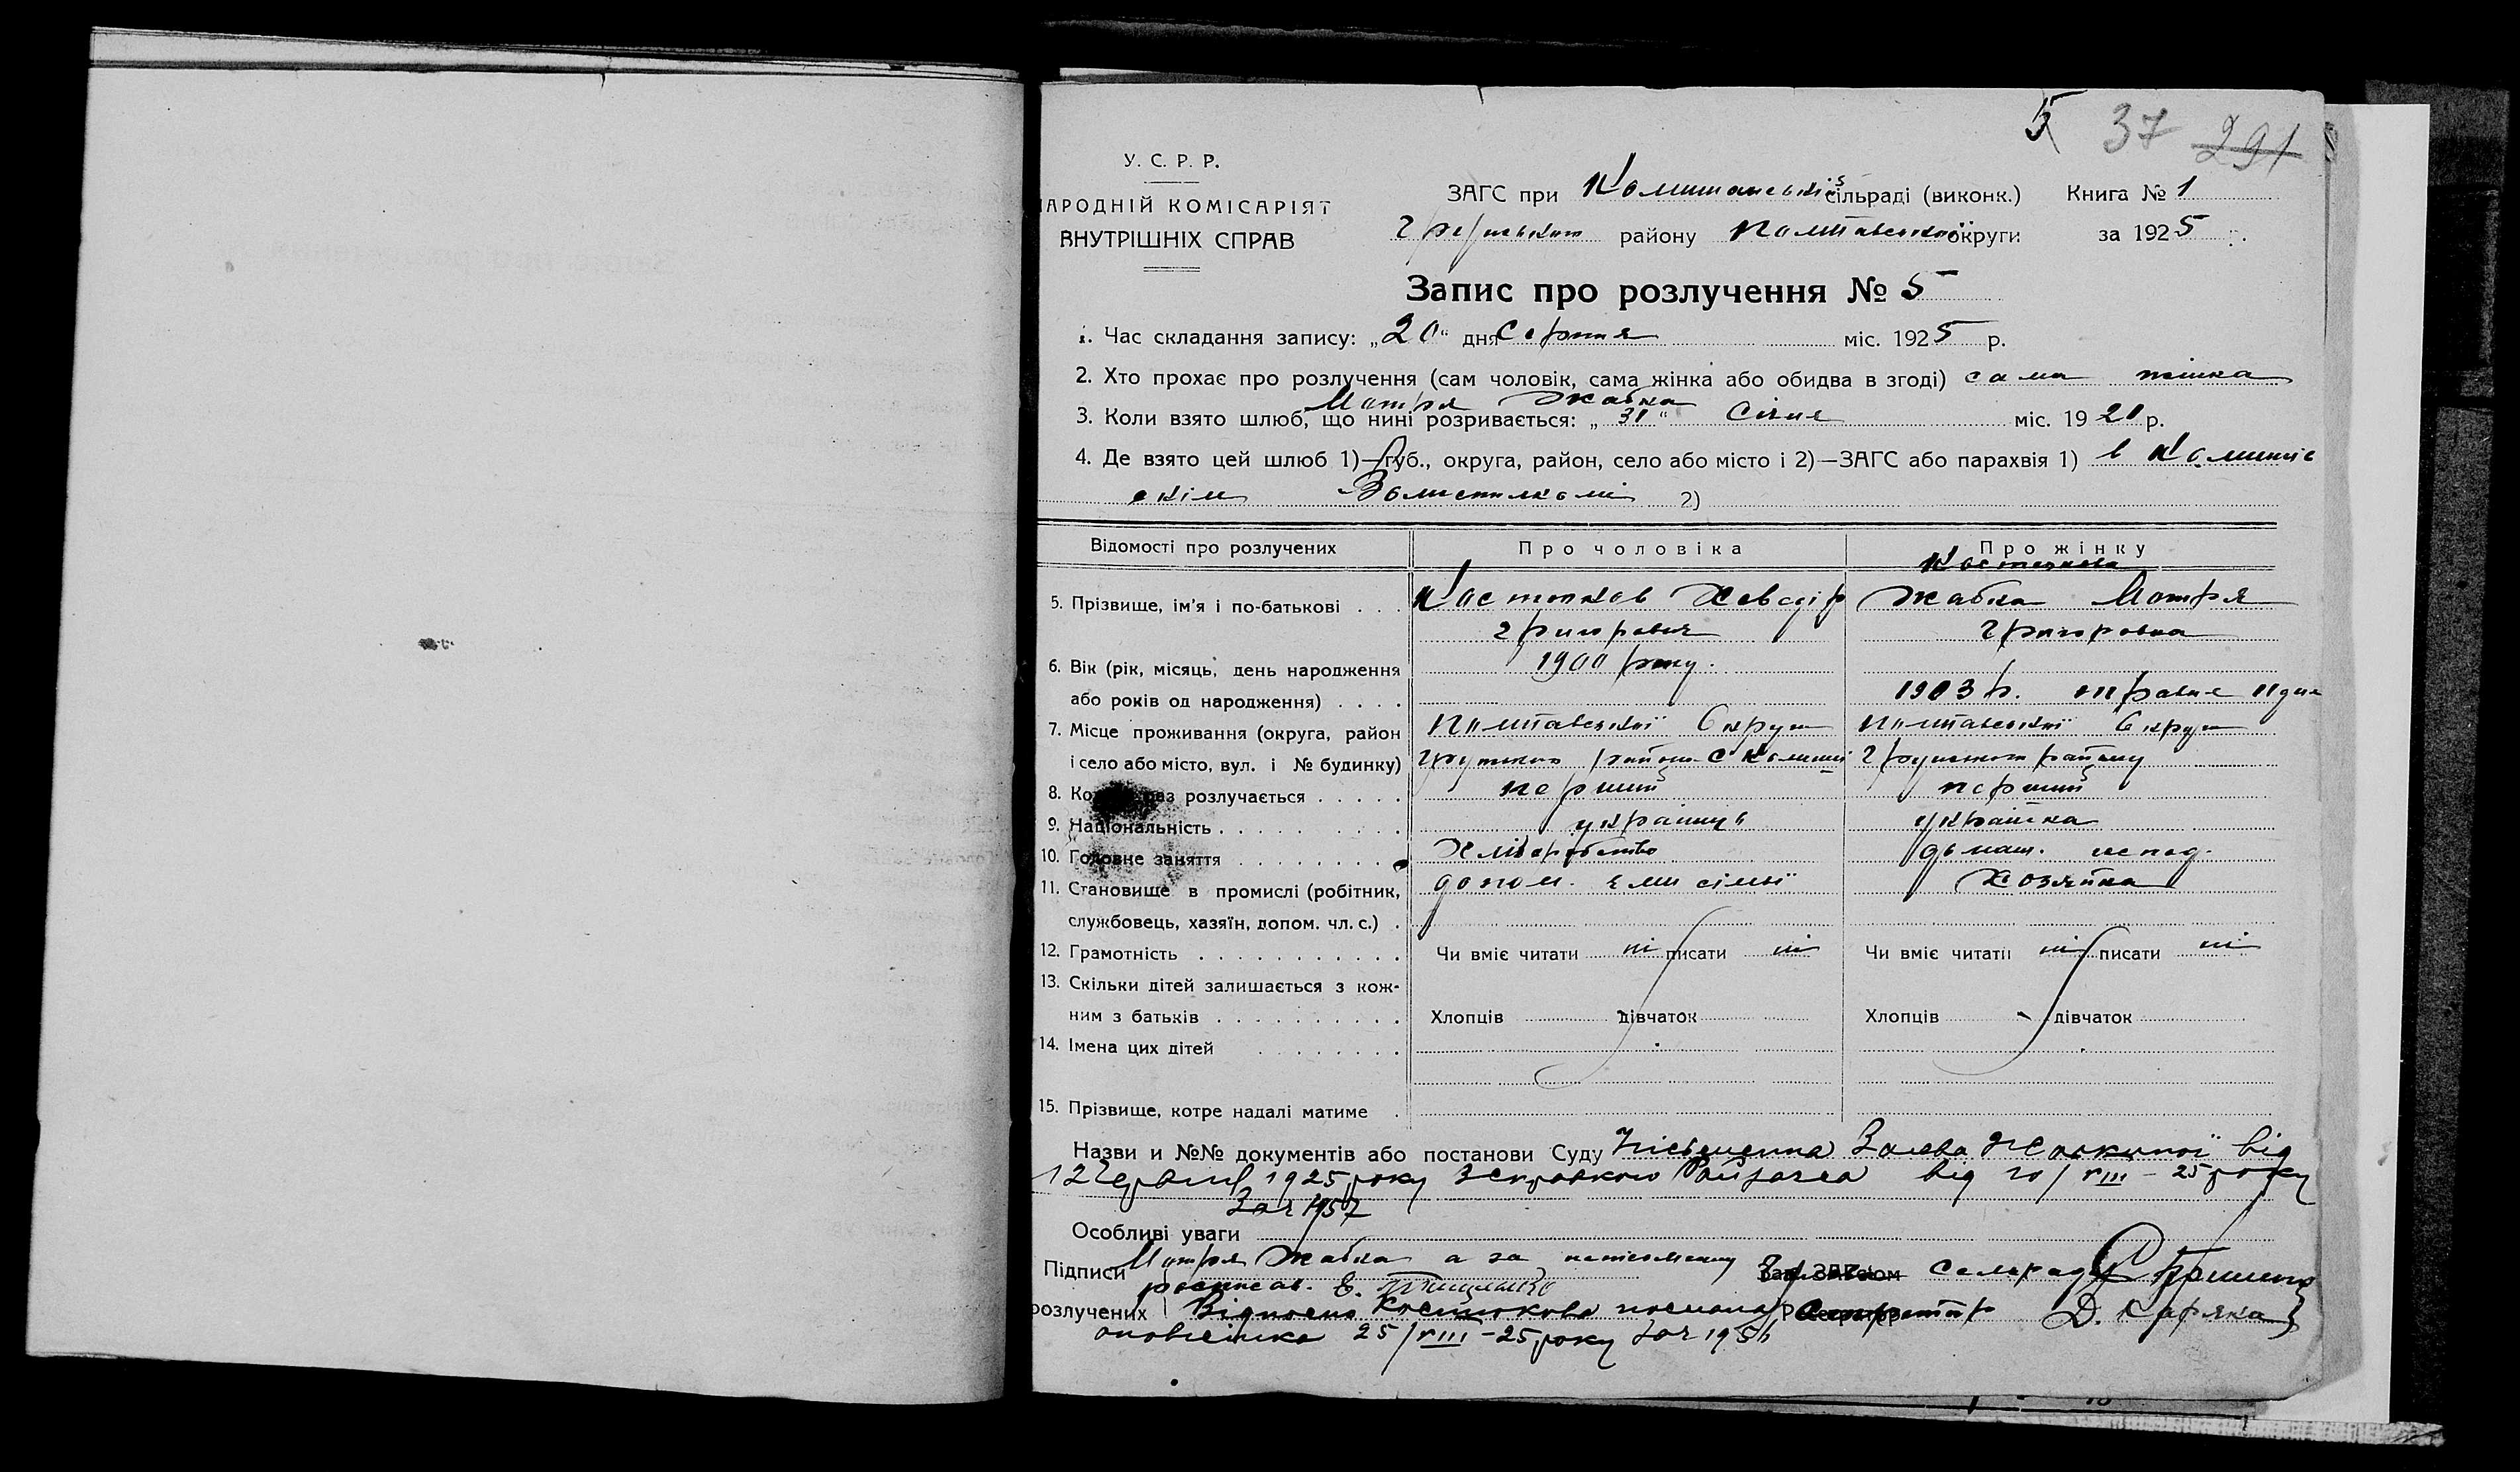 5 37 291
У. С. Р. Р.
НАРОДНІЙ КОМІСАРІЯТ
ВНУТРІШНІХ СПРАВ
ЗАГС при Комишанській сільраді (виконк.) Книга № 1
району Полтавської округи за 1925 р.
Запис про розлучення № 5
1. Час складання запису: „20“ дня Серпня міс. 1925 р.
2. Хто прохає про розлучення (сам чоловік, сама жінка або обидва в згоді) сама жінка
Мотря Жабка
3. Коли взято шлюб, що нині розривається: „31“ Січня міс. 1920 р.
4. Де взято цей шлюб 1)—губ., округа, район, село або місто і 2)—ЗАГС або парахвія 1) в
скім 2)
Відомості про розлучених Про чоловіка Про жінку
5. Прізвище, ім'я і по-батькові Костюков Хведір Жабка Мотря
Григорович Григоровна
6. Вік (рік, місяць, день народження 1900 року.
або років од народження) 1903 р. травня 11 дня
7. Місце проживання (округа, район Полтавської Округи Полтавської Округи
і село або місто, вул. і № будинку) району с району
8. Котрий раз розлучається перший перший
9. Національність українець українка
10. Головне заняття Хліборобство домаш. господ.
11. Становище в промислі (робітник, допом. член сімьї Хозяйка
службовець, хазяїн, допом. чл. с.)
12. Грамотність Чи вміє читати ні писати ні Чи вміє читати ні писати ні
13. Скільки дітей залишається з кож-
ним з батьків Хлопців дівчаток Хлопців дівчаток
14. Імена цих дітей
15. Прізвище, котре надалі матиме
Назви и №№ документів або постанови Суду Письменна Заява від
12 Червня 1925 року з справкою Райзагса від 20/VIII – 25 року
За № 1957
Особливі уваги
Підписи Мотря Жабка а за неписьменну Зав. ЗАГСом Сельради
росписав. Е.
розлучених Відносно Костюкова послана Реєстратор Секретар Д. Каряка
оповістка 25/VIII – 25 року за №